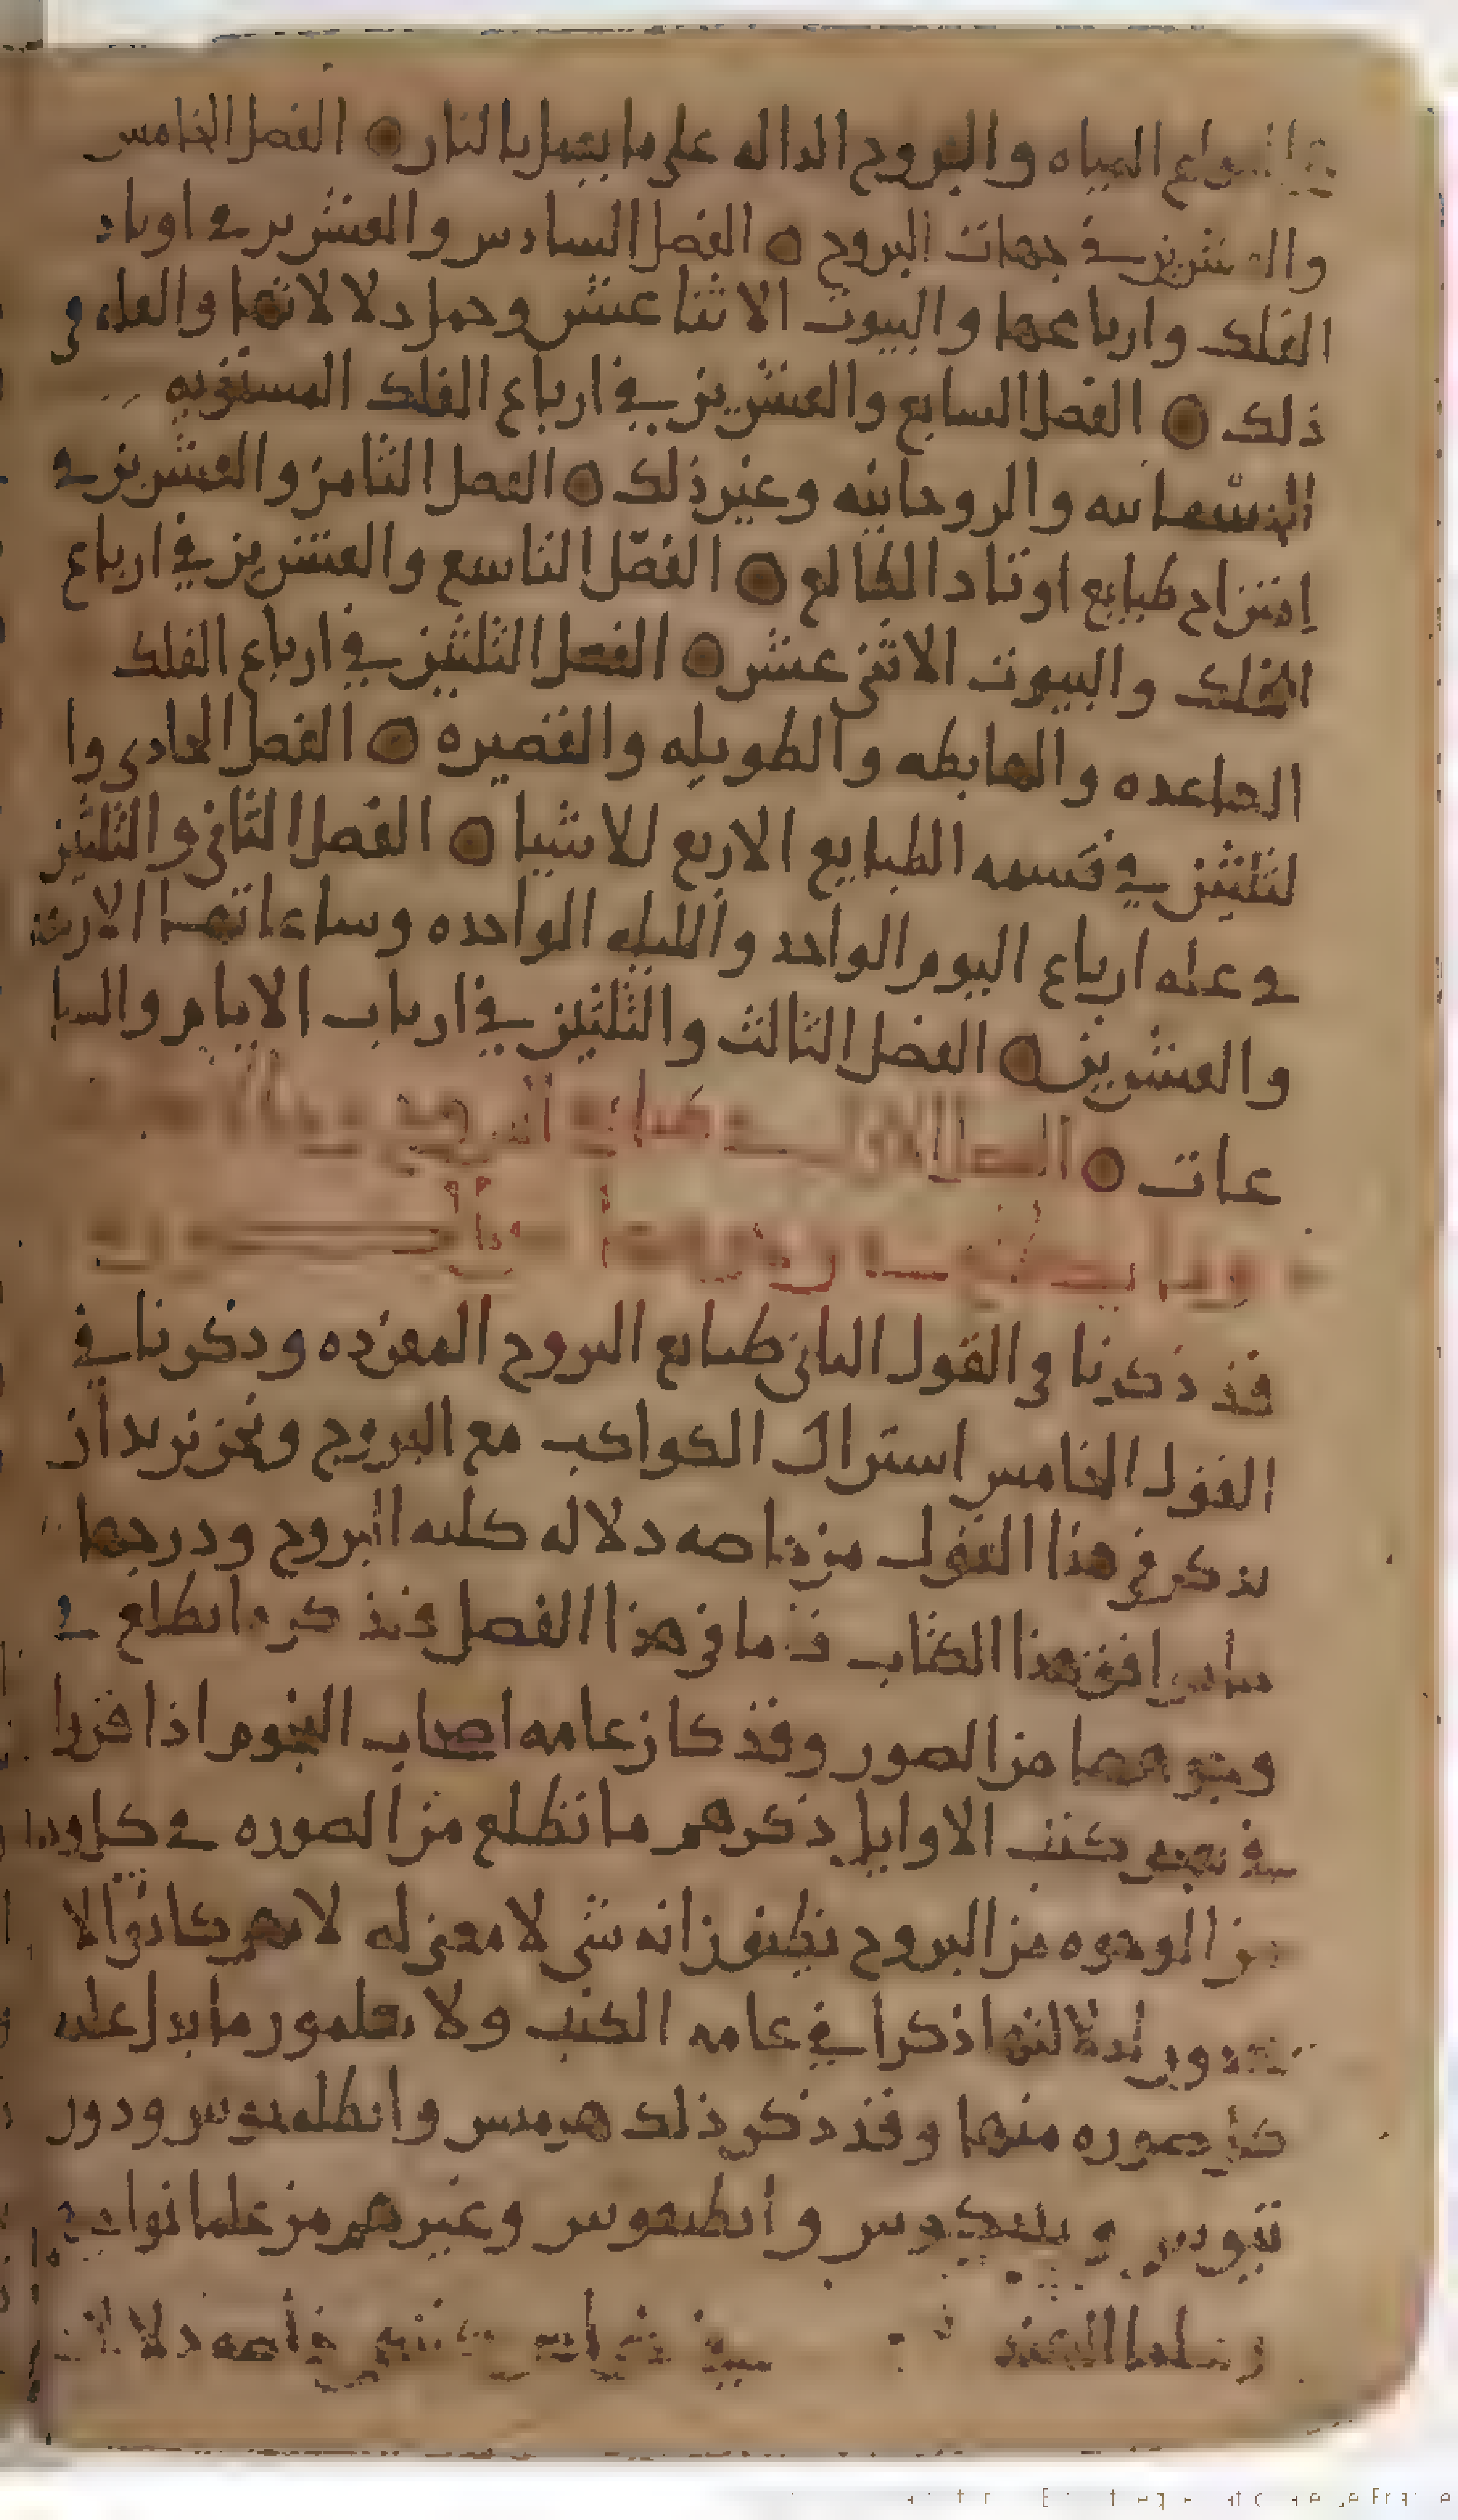 انواع المياه والبروج الداله على ما يعمل بالنار ○ الفصل الخامس
والعشرين في جهات البروج ○ الفصل السادس والعشرين في اوتاد
الفلك وارباعها والبيوت الاثنا عشر وجمل دلالاتها والعله في
ذلك ○ الفصل السابع والعشرين في ارباع الفلك المنسوبه
الجسمانيه والروحانيه وغير ذلك ○ الفصل الثامن والعشرين في
امتزاج طبايع اوتاد الطالع ○ الفصل التاسع والعشرين في ارباع
الفلك والبيوت الاثنى عشر ○ الفصل الثلثين في ارباع الفلك
الصاعده والهابطه والطويله والقصيره ○ الفصل الحادى وا
لثلثين في قسمه الطبايع الاربع للاشيا ○ الفصل الثانى والثلثين
في عله ارباع اليوم الواحد والليله الواحده وساعاتهما الاربعه
والعشرين ○ الفصل الثالث والثلثين في ارباب الايام والسا
عات ○ الفصل الاول في طبايع البروج
قد ذكرنا في القول الثانى طبايع البروج المفرده وذكرنا في
القول الخامس اشتراك الكواكب مع البروج ونحن نريد ان
نذكر في هذا القول من خاصه دلاله كليه البروج ودرجها
هذا الكتاب فاما في هذا الفصل فنذكر ما يطلع في
وجوهها من الصور وقد كان عامه اصحاب النجوم اذا قروا
في بعض كتب الاوايل ذكرهم ما تطلع من الصوره في كل وجه
من الوجوه من البروج يظنون انه شى لا معنى له لانهم كانوا لا
يجدون لدلالتها ذكرا في عامه الكتب ولا يعلمون ما يدل عليه
كل صوره منها وقد ذكر ذلك هرمس وابطلميوس ودور
تيوس و وانطيقوس وغيرهم من علما نواحيهم
من علما الهند خاصه دلالات